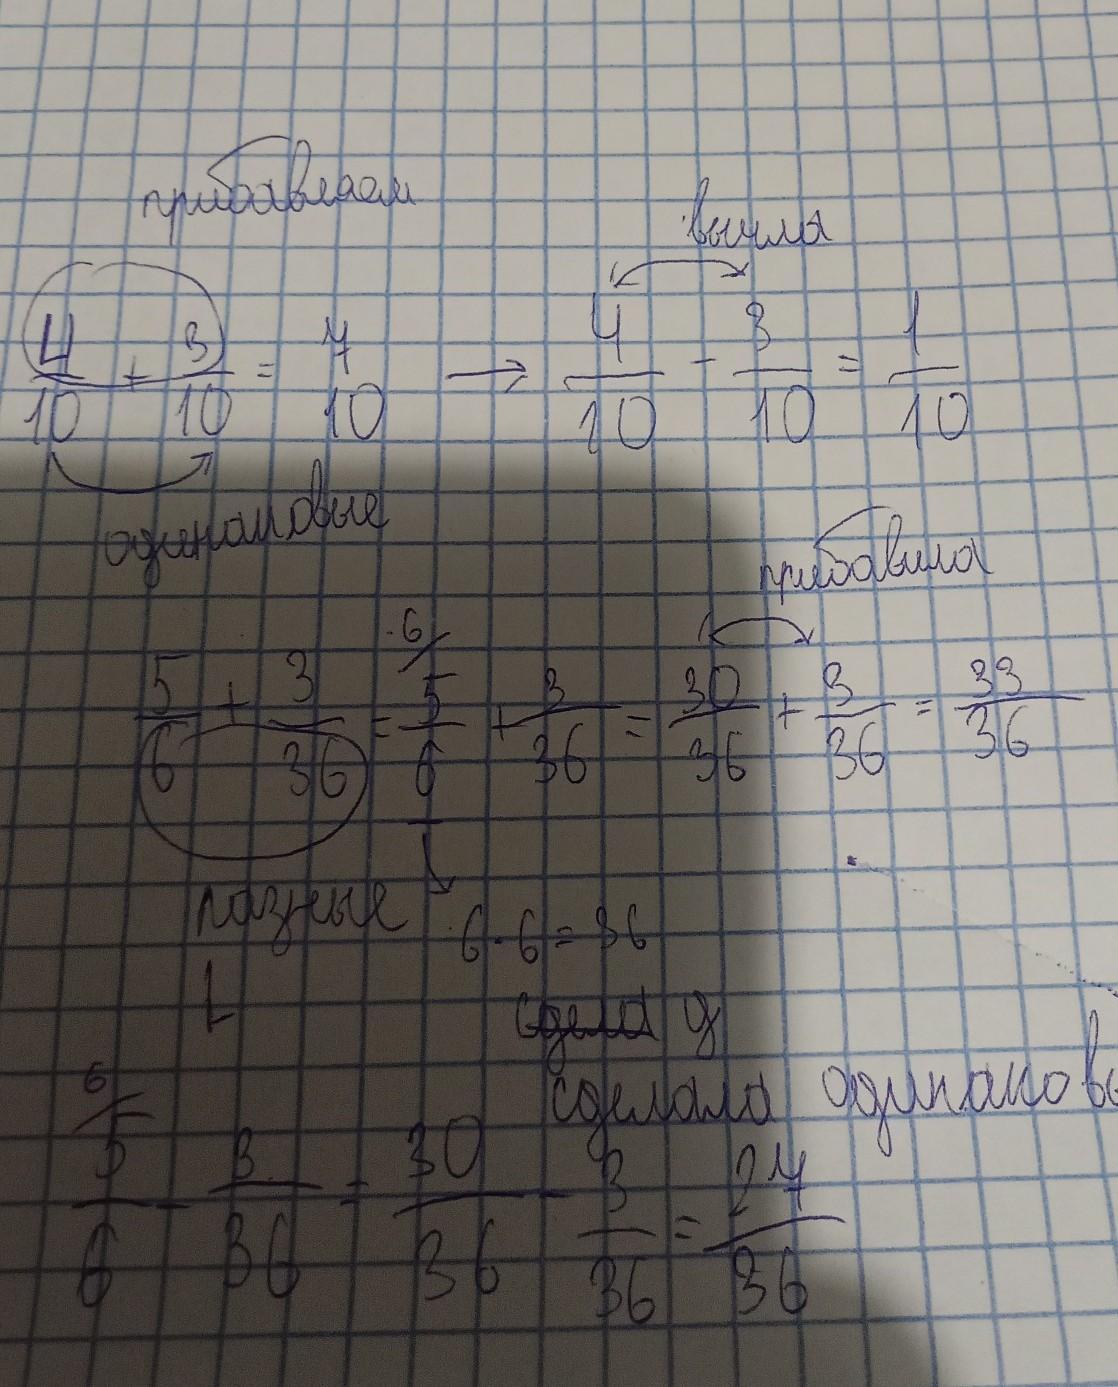 прибавляем
вычла
4/10 + 3/10 = 7/10 → 4/10 - 3/10 = 1/10
одинаковые
прибавила
·6
5/6 + 3/36 = 5/6 + 3/36 = 30/36 + 3/36 = 33/36
разные
6·6=36
сделала одинаковы
6
5/6 - 3/36 = 30/36 - 3/36 = 27/36